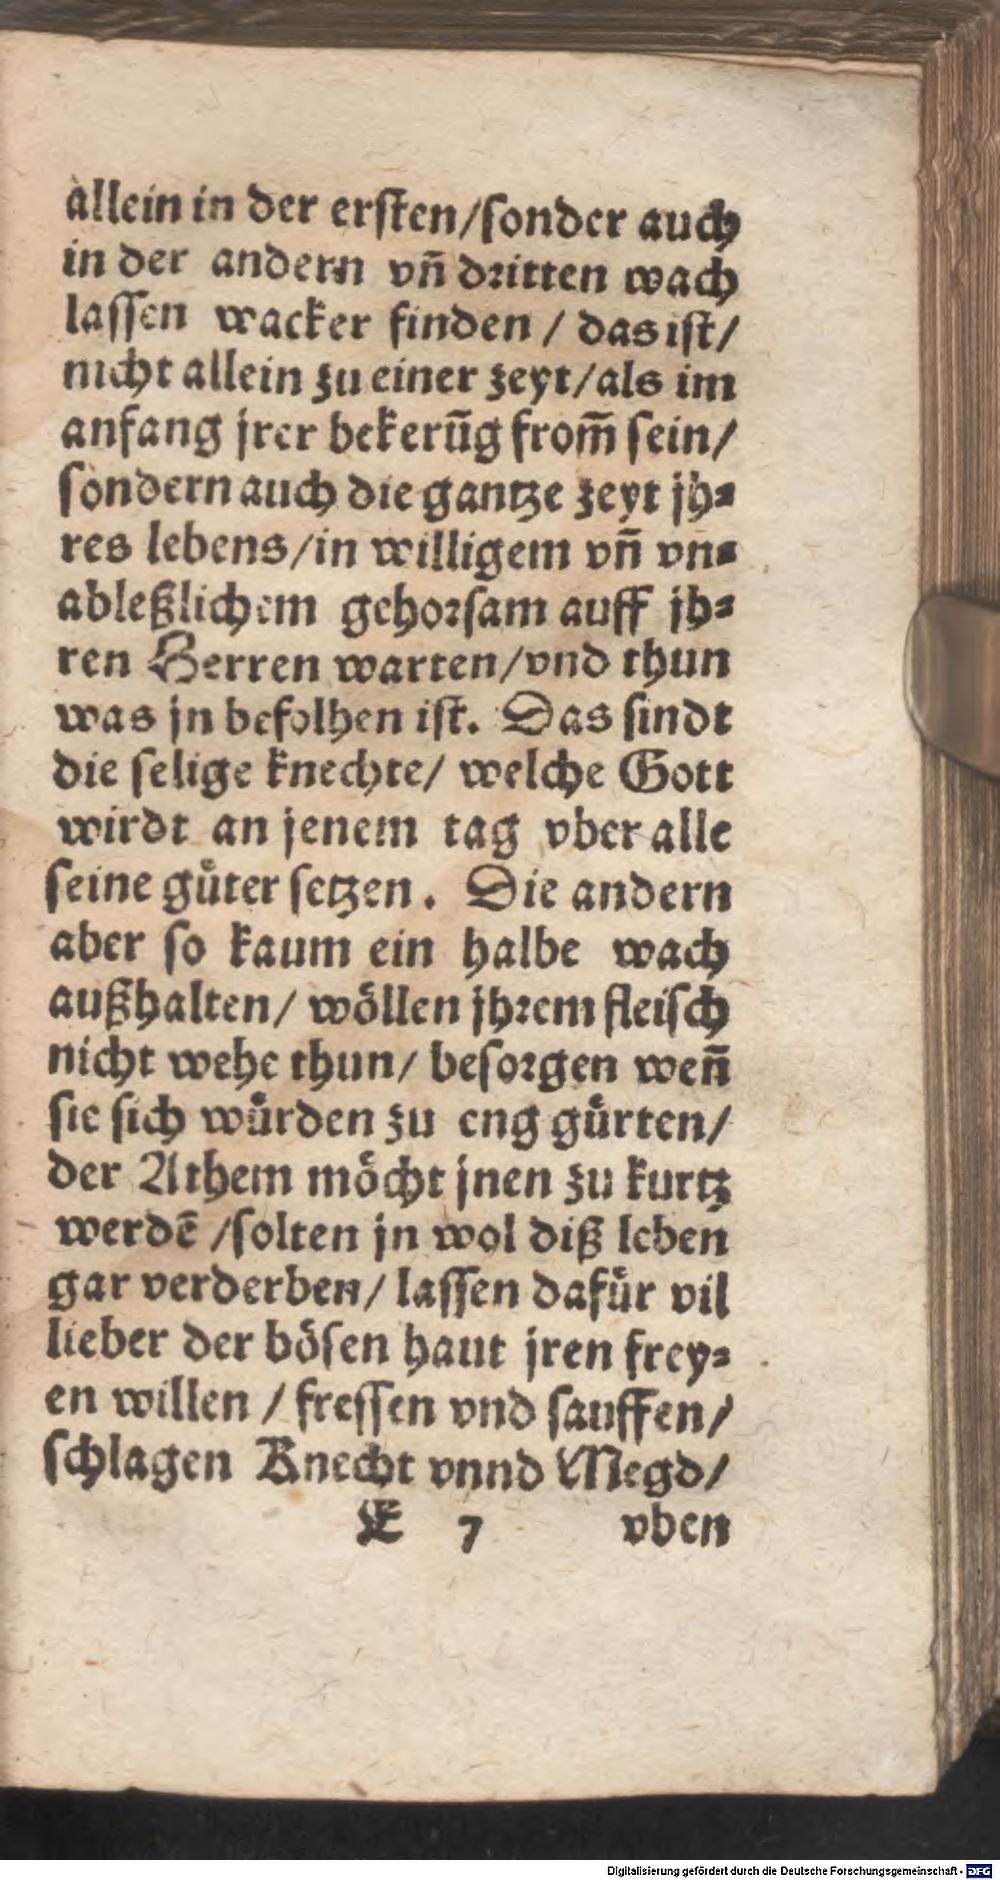 allein in der ersten/sonder auch
in der andern vñ dritten wach
lassen wacker finden / das ist/
nicht allein zu einer zeyt/als im
anfang jrer bekerūg from̄ sein/
sondern auch die gantze zeyt jh⸗
res lebens/in willigem vñ vn⸗
ableßlichem gehorsam auff jh⸗
ren Herren warten/vnd thun
was jn befolhen ist. Das sindt
die selige knechte/ welche Gott
wirdt an jenem tag vber alle
seine guͤter setzen. Die andern
aber so kaum ein halbe wach
außhalten/ woͤllen jhrem fleisch
nicht wehe thun/ besorgen weñ
sie sich wuͤrden zu eng guͤrten/
der Athem moͤcht jnen zu kurtz
werdē /solten jn wol diß leben
gar verderben/ lassen dafuͤr vil
lieber der boͤsen haut jren frey⸗
en willen / fressen vnd sauffen/
schlagen Knecht vnnd Megd/
E 7 vben
Digitalisierung gefördert durch die Deutsche Forschungsgemeinschaft - DFG